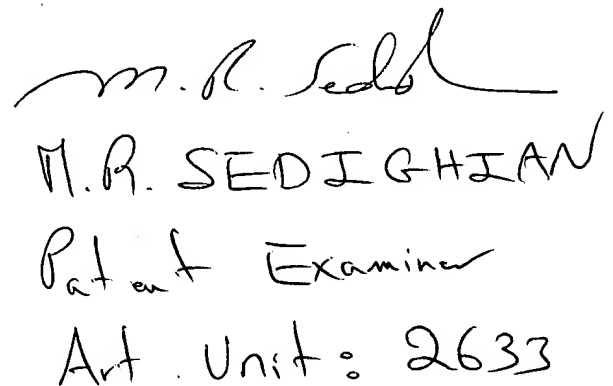 M. R. Sedigh
M.R. SEDIGHIAN
Patent Examiner
Art. Unit: 2633